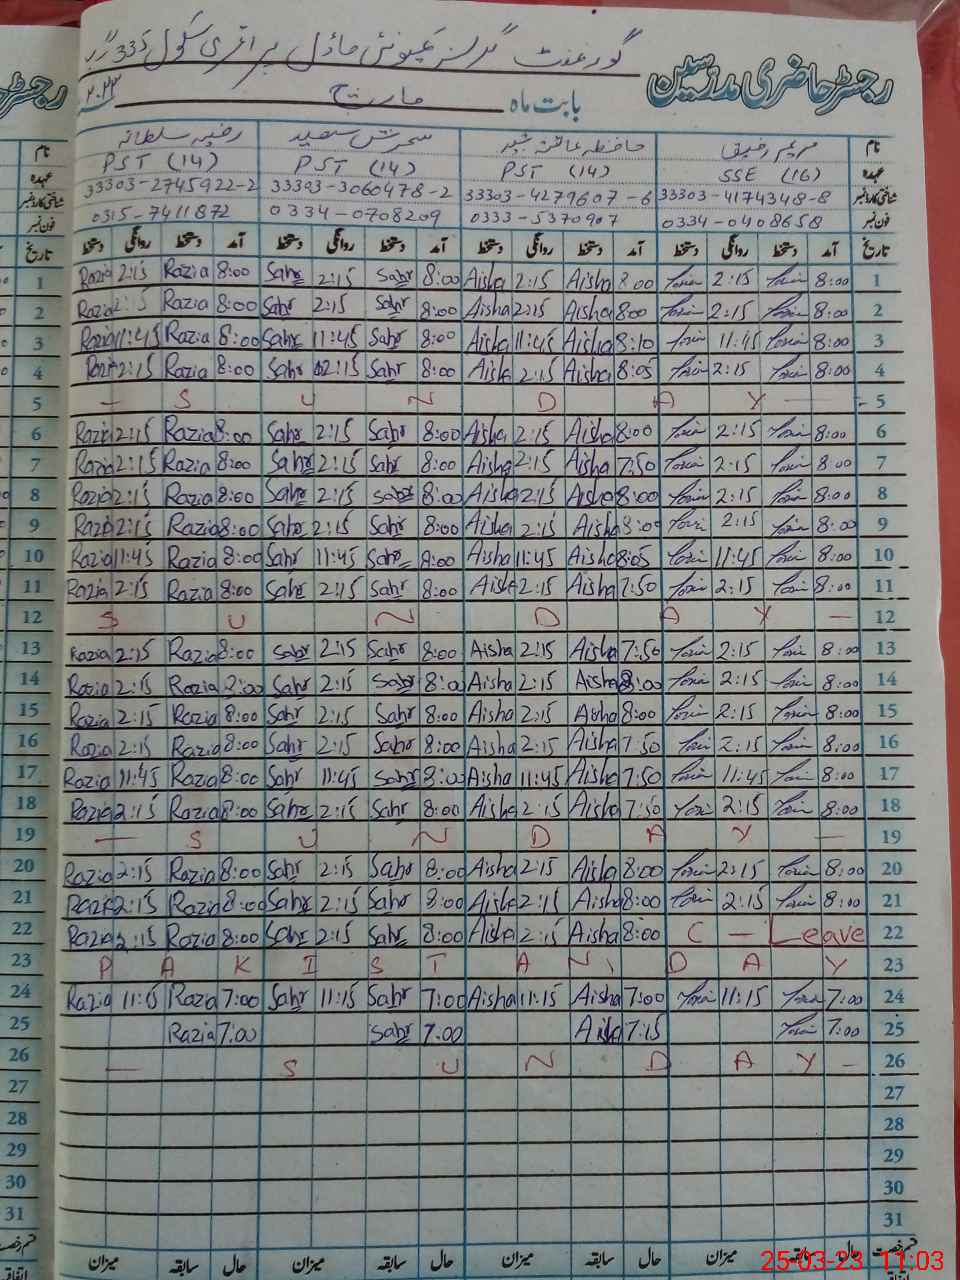 رجسٹر حاضری مدرسین
گورنمنٹ گرلز کمیونٹی ماڈل پرائمری سکول 335 گ ب
بابت ماہ مارچ ۲۰۲۳
نام مریم رفیق حافظہ عائشہ سحرش سعید رضیہ سلطانہ
عہدہ
PST (14) PST (14) PST (14) SSE (16)
شناختی کارڈ نمبر
33303-2745922-2 33303-3060478-2 33303-4279607-6 33303-4174348-8
فون نمبر
0315-7411872 0334-0708209 0333-5370907 0334-0408658
تاریخ آمد دستخط روانگی دستخط آمد دستخط روانگی دستخط آمد دستخط روانگی دستخط آمد دستخط روانگی دستخط
Razia 2:15 Razia 8:00 Sahr 2:15 Sahr 8:00 Aisha 2:15 Aisha 8:00 2:15 8:00 1
Razia 2:15 Razia 8:00 Sahr 2:15 Sahr 8:00 Aisha 2:15 Aisha 8:00 2:15 8:00 2
Razia 11:45 Razia 8:00 Sahr 11:45 Sahr 8:00 Aisha 11:45 Aisha 8:10 11:45 8:00 3
Razia 2:15 Razia 8:00 Sahr 2:15 Sahr 8:00 Aisha 2:15 Aisha 8:05 2:15 8:00 4
— S U N D A Y — 5
Razia 2:15 Razia 8:00 Sahr 2:15 Sahr 8:00 Aisha 2:15 Aisha 8:00 2:15 8:00 6
Razia 2:15 Razia 8:00 Sahr 2:15 Sahr 8:00 Aisha 2:15 Aisha 7:50 2:15 8:00 7
Razia 2:15 Razia 8:00 Sahr 2:15 Sahr 8:00 Aisha 2:15 Aisha 8:00 2:15 8:00 8
Razia 2:15 Razia 8:00 Sahr 2:15 Sahr 8:00 Aisha 2:15 Aisha 8:00 2:15 8:00 9
Razia 11:45 Razia 8:00 Sahr 11:45 Sahr 8:00 Aisha 11:45 Aisha 8:05 11:45 8:00 10
Razia 2:15 Razia 8:00 Sahr 2:15 Sahr 8:00 Aisha 2:15 Aisha 7:50 2:15 8:00 11
S U N D A Y — 12
Razia 2:15 Razia 8:00 Sahr 2:15 Sahr 8:00 Aisha 2:15 Aisha 7:50 2:15 8:00 13
Razia 2:15 Razia 8:00 Sahr 2:15 Sahr 8:00 Aisha 2:15 Aisha 8:00 2:15 8:00 14
Razia 2:15 Razia 8:00 Sahr 2:15 Sahr 8:00 Aisha 2:15 Aisha 8:00 2:15 8:00 15
Razia 2:15 Razia 8:00 Sahr 2:15 Sahr 8:00 Aisha 2:15 Aisha 7:50 2:15 8:00 16
Razia 11:45 Razia 8:00 Sahr 11:45 Sahr 8:00 Aisha 11:45 Aisha 7:50 11:45 8:00 17
Razia 2:15 Razia 8:00 Sahr 2:15 Sahr 8:00 Aisha 2:15 Aisha 7:50 2:15 8:00 18
— S U N D A Y — 19
Razia 2:15 Razia 8:00 Sahr 2:15 Sahr 8:00 Aisha 2:15 Aisha 8:00 2:15 8:00 20
Razia 2:15 Razia 8:00 Sahr 2:15 Sahr 8:00 Aisha 2:15 Aisha 8:00 2:15 8:00 21
Razia 2:15 Razia 8:00 Sahr 2:15 Sahr 8:00 Aisha 2:15 Aisha 8:00 C - Leave 22
P A K I S T A N D A Y 23
Razia 11:15 Razia 7:00 Sahr 11:15 Sahr 7:00 Aisha 11:15 Aisha 7:00 11:15 7:00 24
Razia 7:00 Sahr 7:00 Aisha 7:15 7:00 25
— S U N D A Y — 26
27
28
29
30
31
قسم رخصت حال سابقہ میزان حال سابقہ میزان حال سابقہ میزان حال سابقہ میزان
25-03-23 11:03